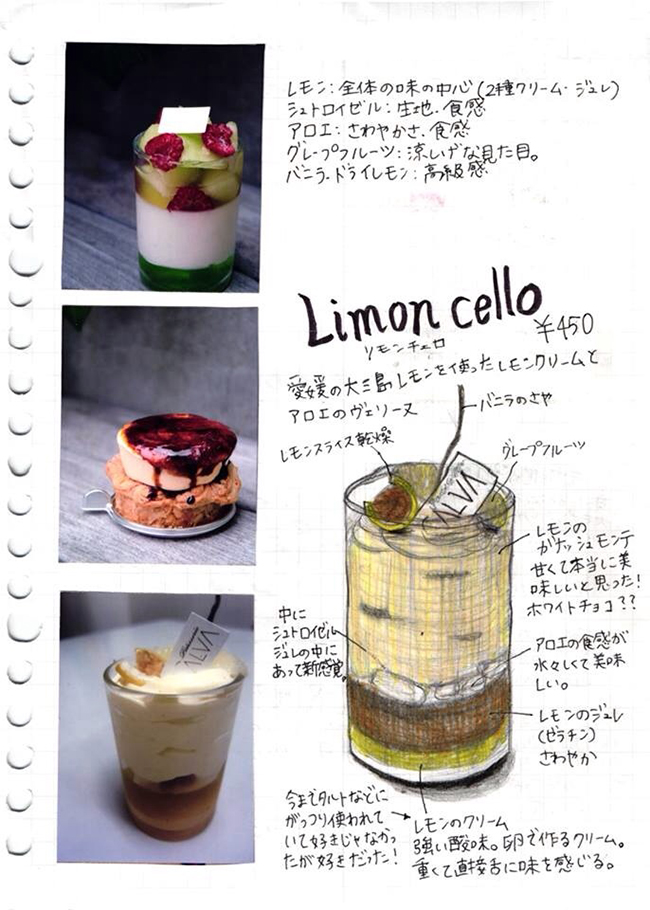 レモン：全体の味の中心(2種クリーム・ジュレ)
シュトロイゼル：生地.食感
アロエ：さわやかさ.食感
グレープフルーツ：涼しげな見た目。
バニラ.ドライレモン：高級感
Limon cello
¥450
リモンチェロ
愛媛の大三島レモンを使ったレモンクリームと
アロエのヴェリーヌ
バニラのさや
レモンスライス乾燥
グレープフルーツ
ALVA
レモンの
ガナッシュモンテ
甘くて本当に美
味しいと思った！
ホワイトチョコ??
中に
シュトロイゼル
ジュレの中に
あって新感覚。
アロエの食感が
水々しくて美味
しい。
レモンのジュレ
(ゼラチン)
さわやか
今までタルトなどに
がっつり使われて
いて好きじゃなかっ
たが好きだった！
レモンのクリーム
強い酸味。卵で作るクリーム。
重くて直接舌に味を感じる。
ALVA